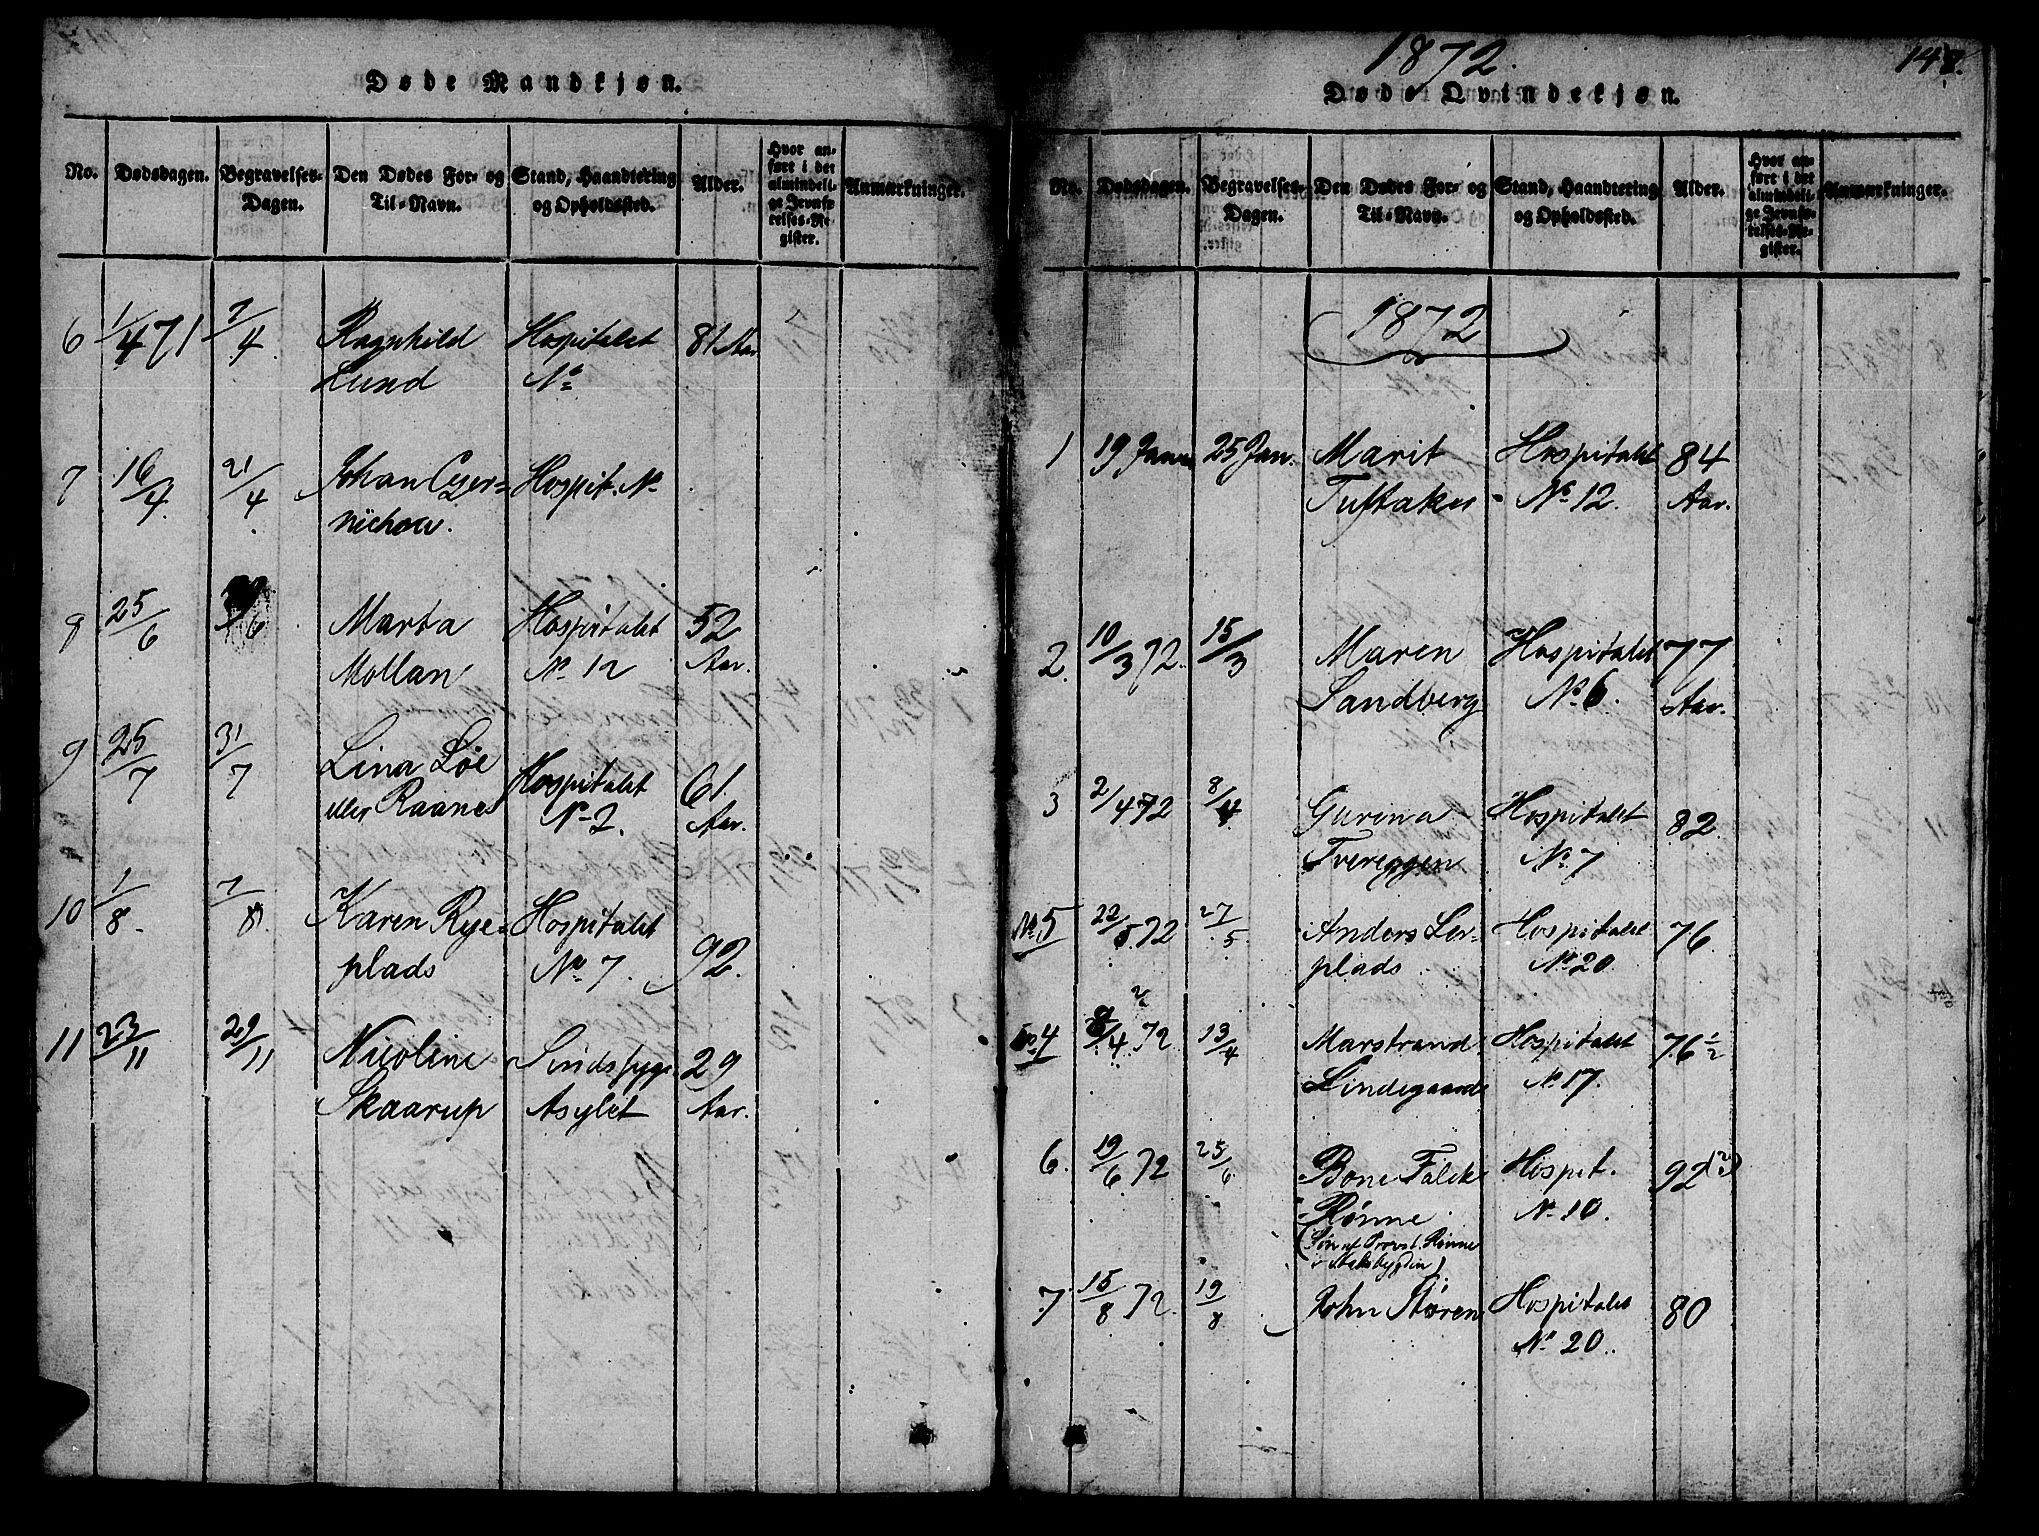 Døde Mandkjøn.
No. Dødsdagen. Begravelses-Dagen. Den Dødes For- og Til-Navn. Stand, Haandtering og Opholdssted. Alder. Hvor anført i det almindelige Jevnførelses-Register. Anmærkninger.
6 1/4 71 7/4 Ragnhild Hospitalet 81 Aar
Lund No
7 16/4 21/4 Johan Hospit. No
8 25/6 Marta Hospitalet 52
Mollan No 12 Aar.
9 25/7 31/7 Lina Löe Hospitalet 61
eller Raanes No 2. Aar.
10 1/8 7/8 Karen Rye= Hospitalet 92.
plads No 7.
11 23/11 29/11 Nicoline Sindssyge 29
Skaarup Asylet Aar.
1872. 147.
Døde Qvindekjøn.
No. Dødsdagen. Begravelses-Dagen. Den Dødes For- og Til-Navn. Stand, Haandtering og Opholdssted. Alder. Hvor anført i det almindelige Jevnførelses-Register. Anmærkninger.
1872
1 19 Janu 25 Jan. Marit Hospitalet 84
Tuftaker No 12. Aar.
2. 10/3 72. 15/3 Maren Hospitalet 77
Sandberg No 6. Aar.
3 2/4 72 8/4 Gurina Hospitalet 82
Tvereggen No 7
No 5 22/5 72 27/5 Anders Ler= Hospitalet 76.
plads No 20
No 4 8/4 72 13/4 Marstrand Hospitalet 76 1/2
Lindegaard No 17.
6. 19/6 72 25/6 Bone Falck Hospit. 92 (?)
Rönne No 10.
(Søn af Provst Rönne
i Stadsbygden)
7. 15/8 72. 19/8 John Støren Hospitalet 80
No 20.